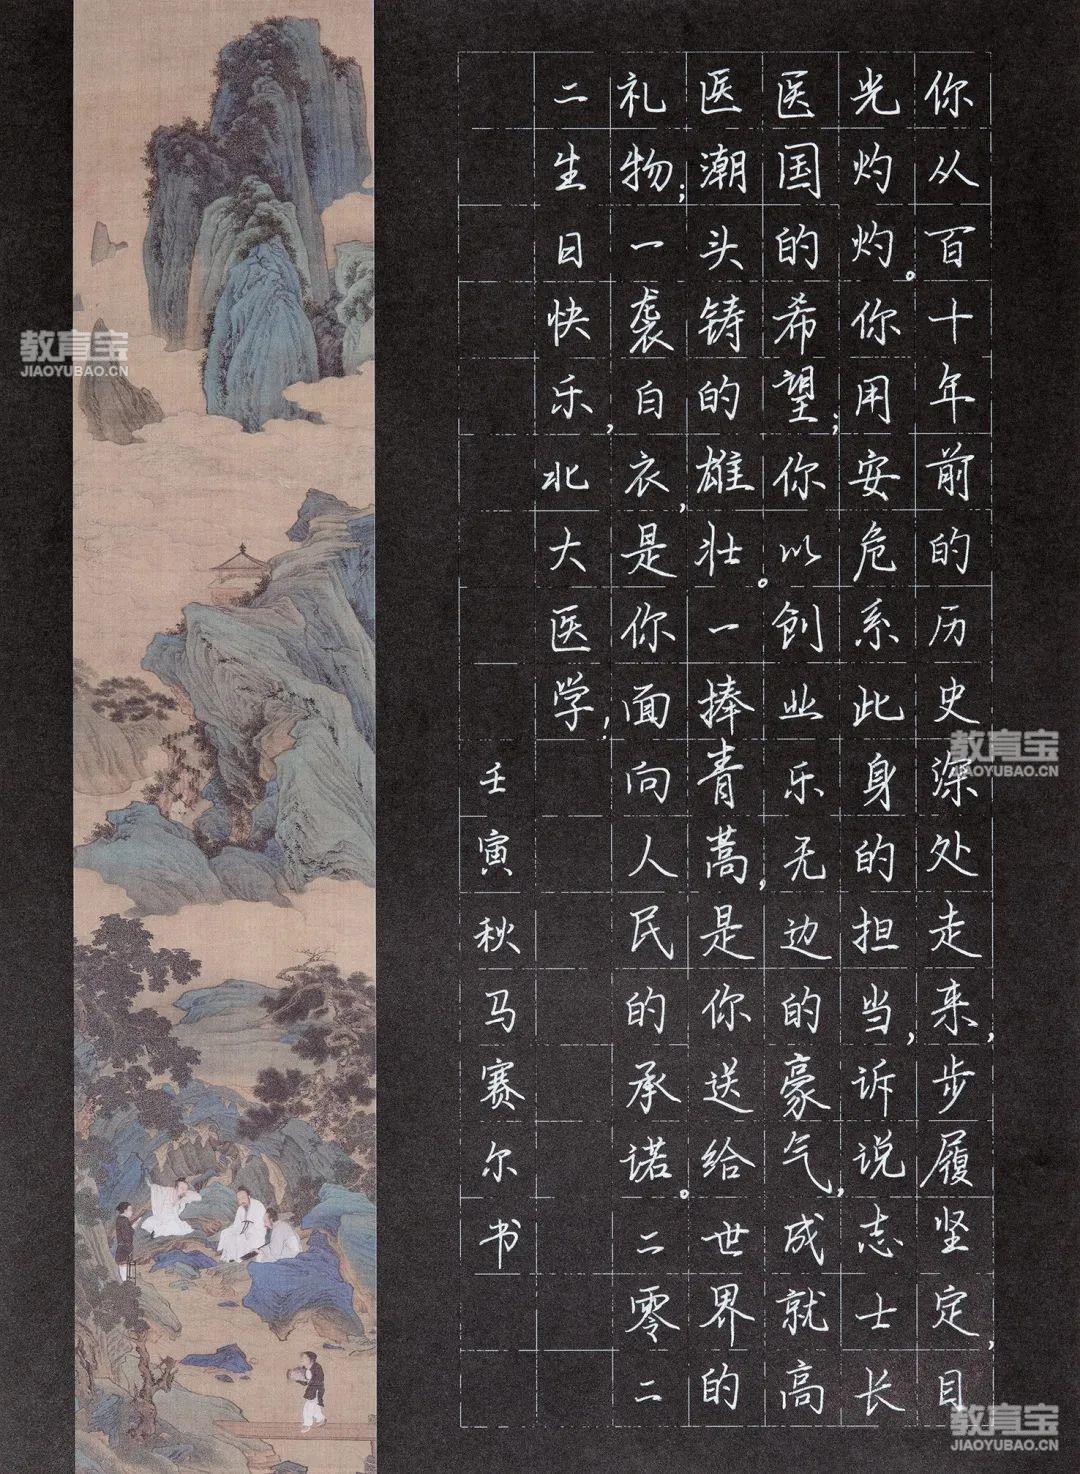 你从百十年前的历史深处走来,步履坚定,目
光灼灼。你用安危系此身的担当,诉说志士长
医国的希望;你以创业乐无边的豪气,成就高
医潮头铸的雄壮。一捧青蒿,是你送给世界的
礼物;一袭白衣,是你面向人民的承诺。二零二
二生日快乐,北大医学;
壬寅秋马赛尔书
教育宝
JIAOYUBAO.CN
教育宝
JIAOYUBAO.CN
教育宝
JIAOYUBAO.CN